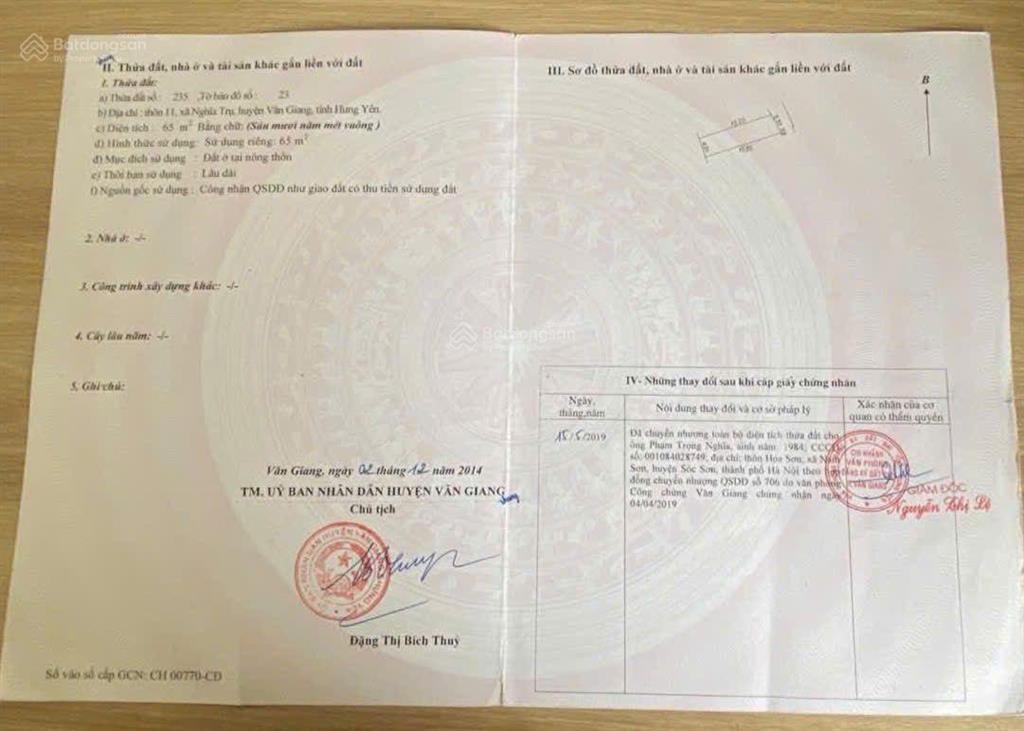 Batdongsan
II. Thửa đất, nhà ở và tài sản khác gắn liền với đất
1. Thửa đất:
a) Thửa đất số: 235 ,Tờ bản đồ số: 23
b) Địa chỉ: thôn 11, xã Nghĩa Trụ, huyện Văn Giang, tỉnh Hưng Yên.
c) Diện tích: 65 m² Bằng chữ: (Sáu mươi năm mét vuông)
d) Hình thức sử dụng: Sử dụng riêng: 65 m²
đ) Mục đích sử dụng : Đất ở tại nông thôn
e) Thời hạn sử dụng : Lâu dài
f) Nguồn gốc sử dụng : Công nhận QSDĐ như giao đất có thu tiền sử dụng đất
2. Nhà ở: -/-
3. Công trình xây dựng khác: -/-
4. Cây lâu năm: -/-
5. Ghi chú:
Văn Giang, ngày 02 tháng 12 năm 2014
TM. UỶ BAN NHÂN DÂN HUYỆN VĂN GIANG
Chủ tịch
Đặng Thị Bích Thuỷ
Số vào sổ cấp GCN: CH 00770-CĐ
III. Sơ đồ thửa đất, nhà ở và tài sản khác gắn liền với đất
B
Batdongsan
IV- Những thay đổi sau khi cấp giấy chứng nhân
Ngày, tháng,năm
Nội dung thay đổi và cơ sở pháp lý
Xác nhận của cơ
quan có thẩm quyền
15/5/2019
Đã chuyển nhượng toàn bộ diện tích thửa đất cho
ông Phạm Trọng Nghĩa, sinh năm: 1984; CCCD
số: 001084028749; địa chỉ: thôn Hoa Sơn, xã Nam
Sơn, huyện Sóc Sơn, thành phố Hà Nội theo hợp
đồng chuyển nhượng QSDĐ số 706 do văn phòng
Công chứng Văn Giang chứng nhận ngày
04/04/2019
CHI NHÁNH
VĂN PHÒNG
VĂN GIANG
GIÁM ĐỐC
Nguyễn Thị Lệ